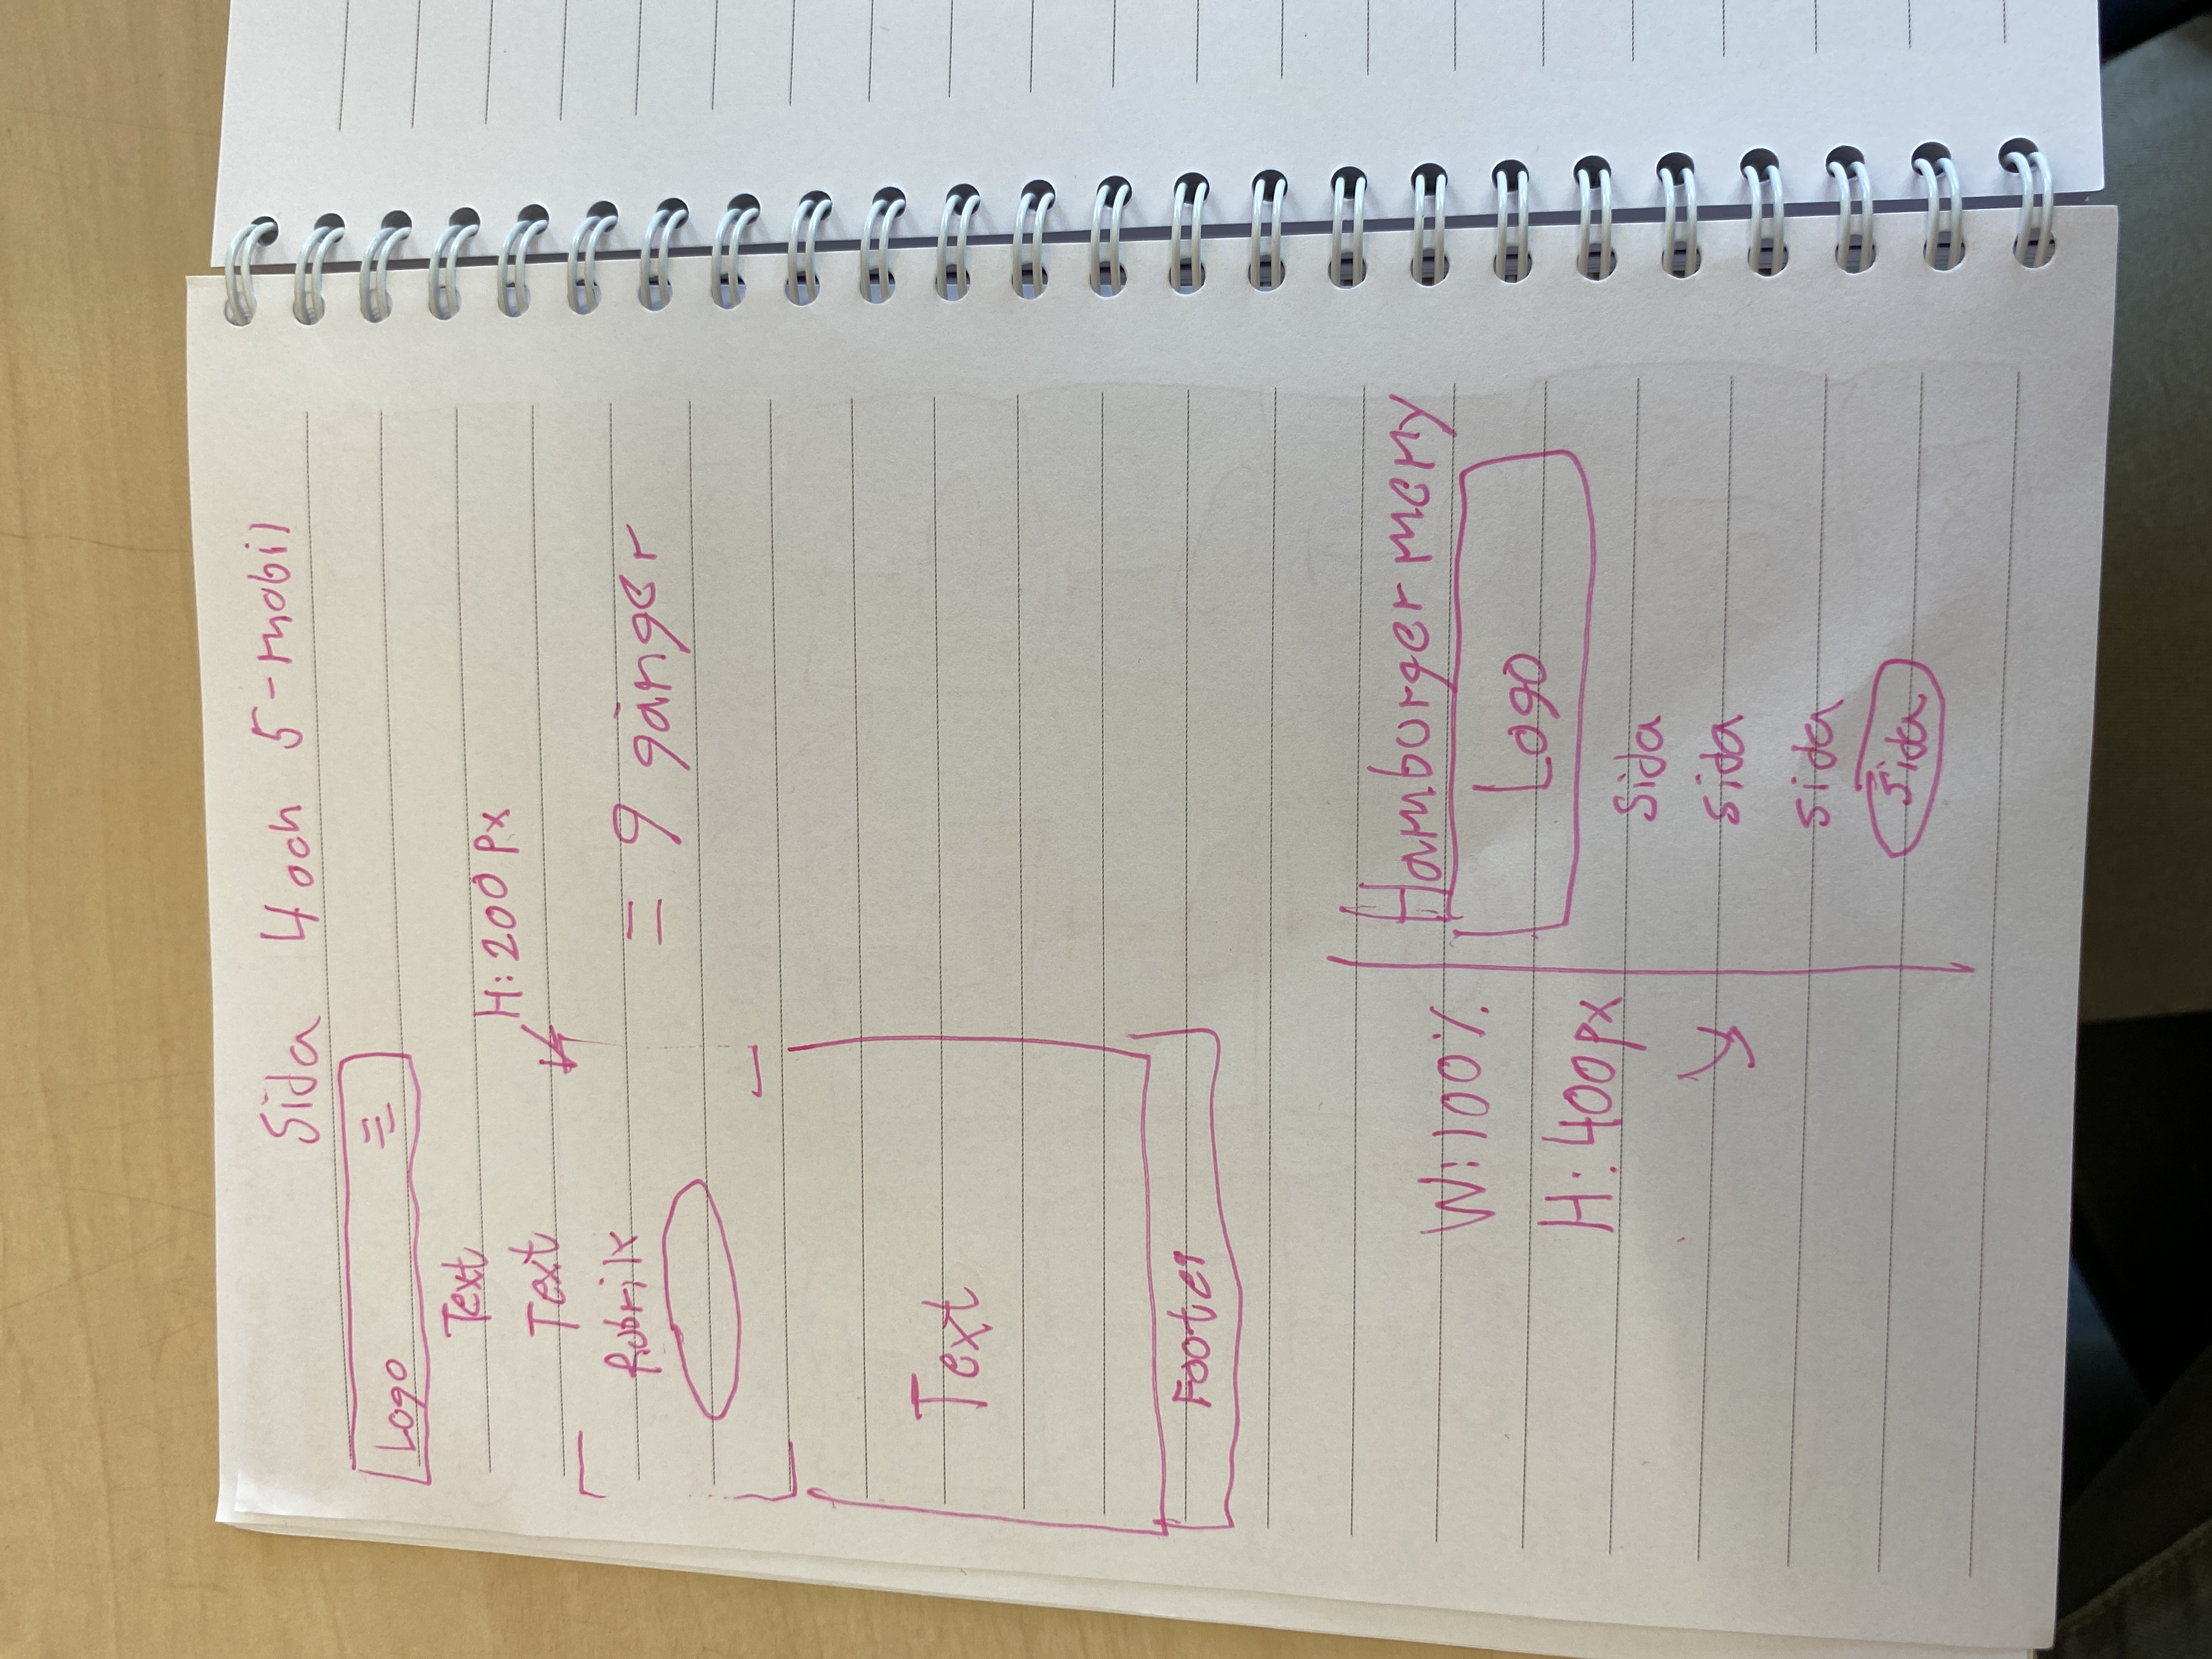 Sida 4 och 5-mobil
Logo
Text
Text
H: 200 px
Rubrik
= 9 gånger
Text
Footer
W: 100%
H: 400px
Hamburger meny
Logo
Sida
sida
sida
Sida